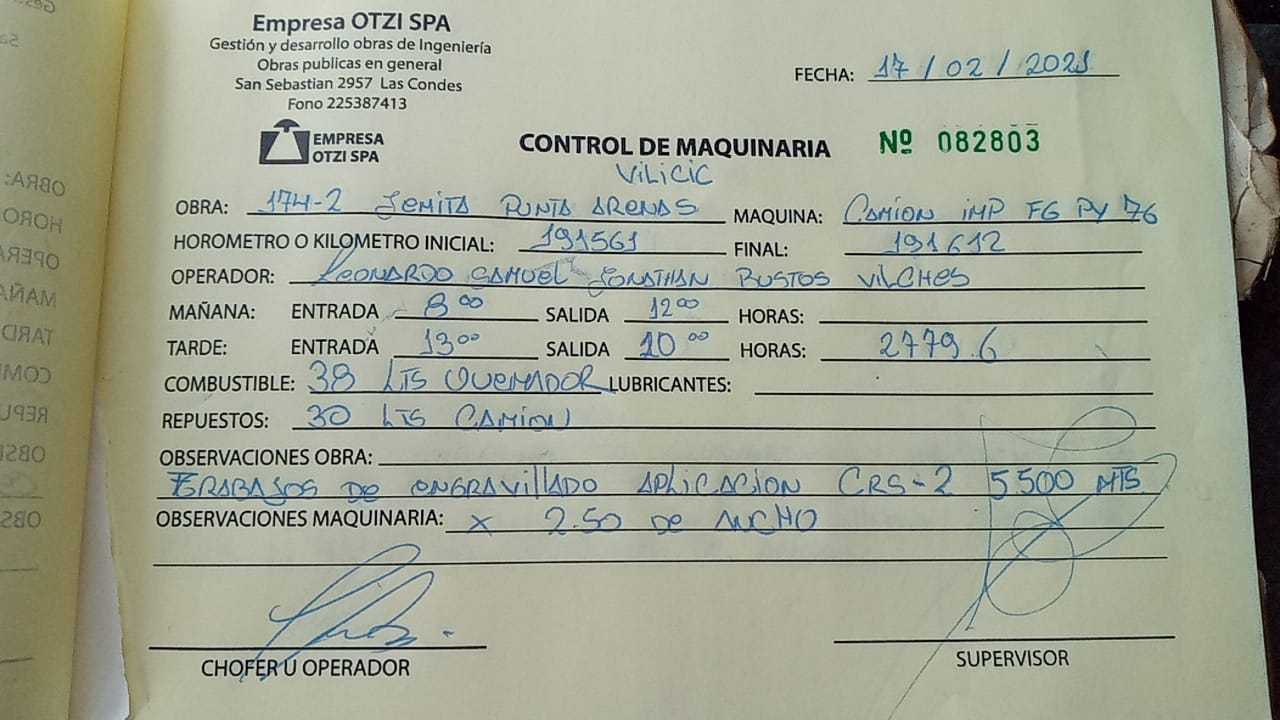 Empresa OTZI SPA
Gestión y desarrollo obras de Ingeniería
Obras publicas en general
San Sebastian 2957 Las Condes
Fono 225387413
FECHA: 17 / 02 / 2021
EMPRESA
OTZI SPA
CONTROL DE MAQUINARIA Nº 082803
VILICIC
OBRA: 174-2 PUNTA ARENAS MAQUINA: CAMION IMP FG PY 76
HOROMETRO O KILOMETRO INICIAL: 191561 FINAL: 191612
OPERADOR: LEONARDO SAMUEL JONATHAN BUSTOS VILCHES
MAÑANA: ENTRADA 8 00 SALIDA 12 00 HORAS:
TARDE: ENTRADA 13 00 SALIDA 20 00 HORAS: 2779.6
COMBUSTIBLE: 38 LTS QUEMADOR LUBRICANTES:
REPUESTOS: 30 LTS CAMION
OBSERVACIONES OBRA:
TRABAJOS DE ENGRAVILLADO APLICACION CRS-2 5.500 MTS
OBSERVACIONES MAQUINARIA: X 2.50 DE ANCHO
CHOFER U OPERADOR
SUPERVISOR